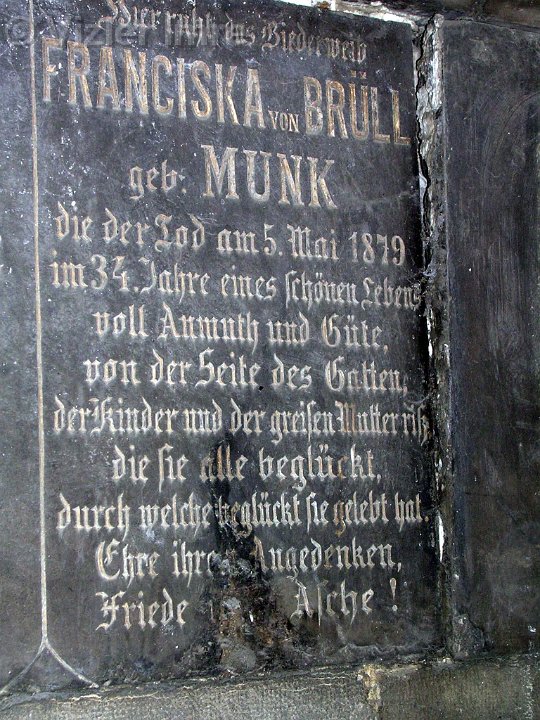 Hier ruht das Biederweib
FRANCISKA VON BRÜLL
geb. MUNK
die der Tod am 5. Mai 1879
im 34. Jahre eines schönen Lebens
voll Anmuth und Güte,
von der Seite des Gatten,
der Kinder und der greisen Mutter riß,
die sie alle beglückt,
durch welche beglückt sie gelebt hat.
Ehre ihrem Angedenken,
Friede Asche!